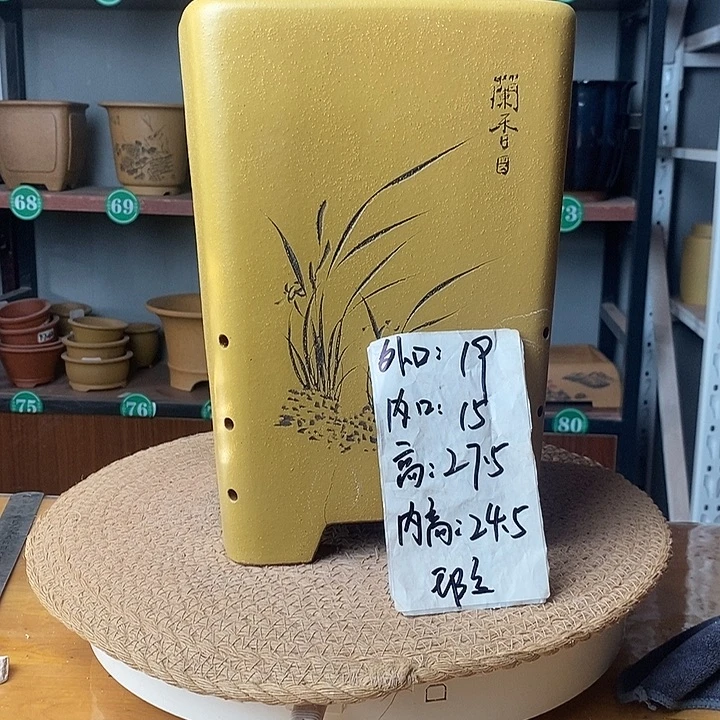 蘭香
外口：19
内口：15
高：27.5
内高：24.5
68
69
73
75
76
80